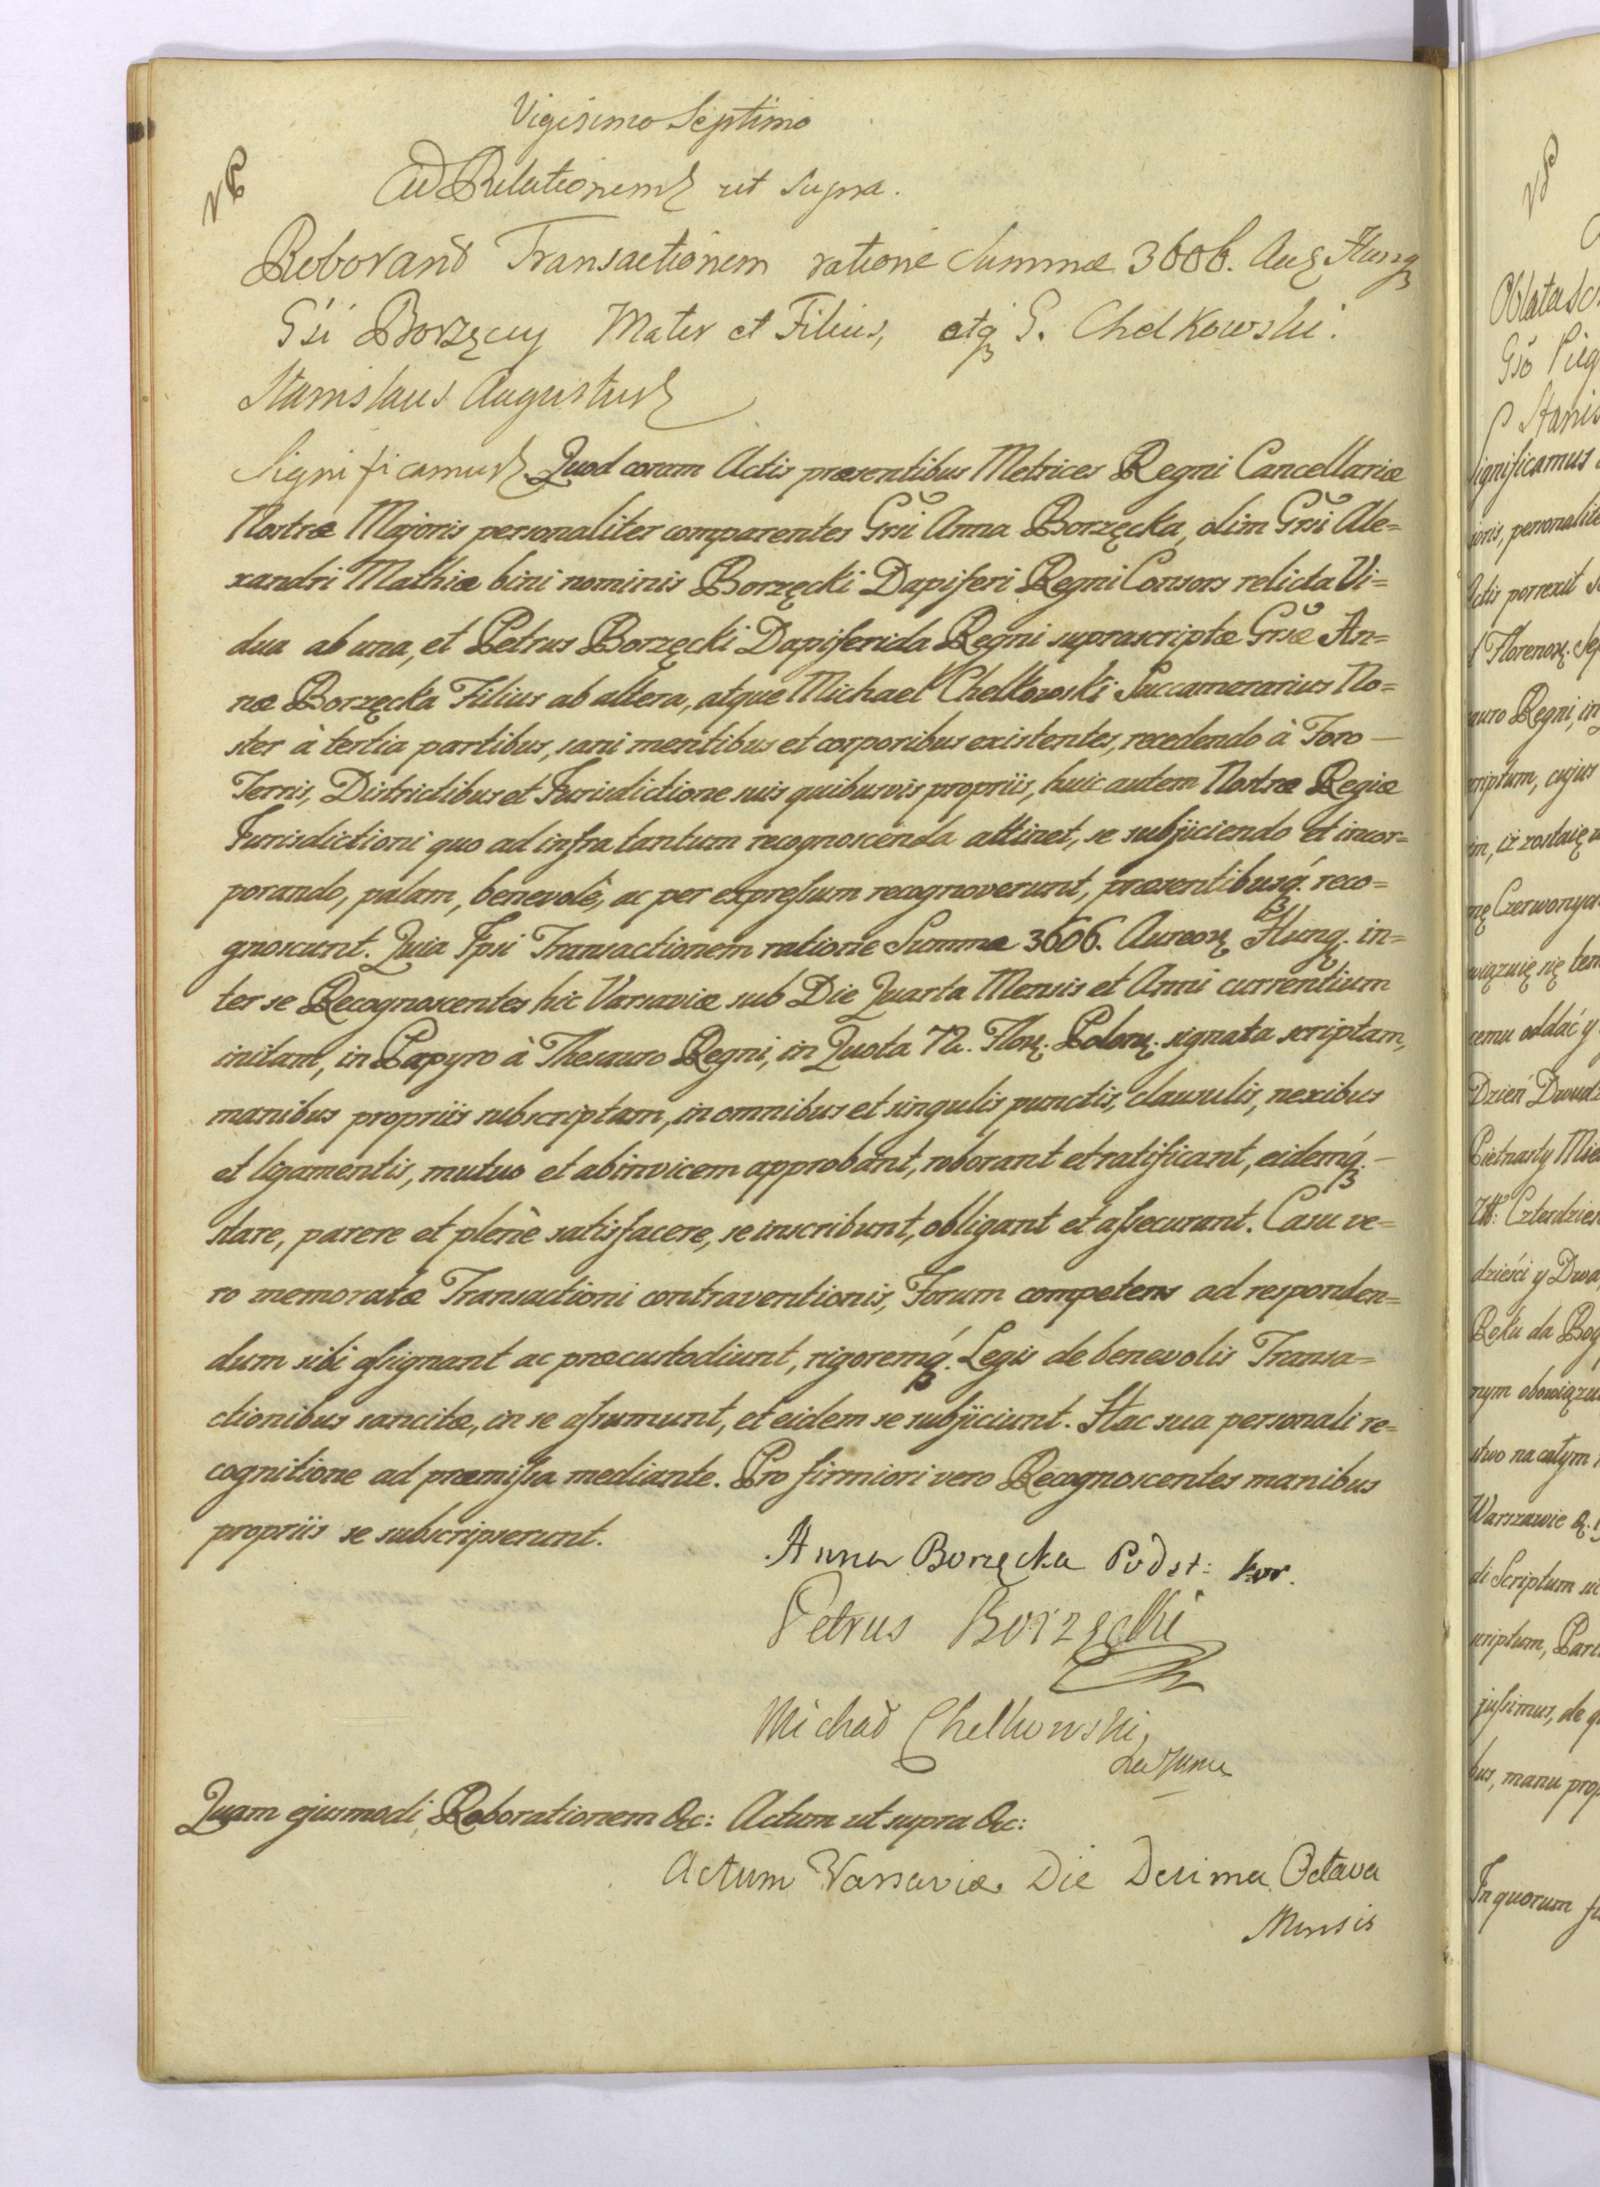 Vigesimo Septimo
Ad Relationem ut supra.
Roborand Transactionem ratione Summæ 3606. Aur Hung
Gsi Borzęcy Mater et Filius, atq G. Chelkowski.
Stanislaus Augustus
Significamus Quod coram Actis præsentibus Metrices Regni Cancellariæ
Nostræ Majoris personaliter comparentes Grsi Anna Borzęcka, olim Grsi Ale=
xandri Mathiæ bini nominis Borzęcki Dapiferi Regni Consors relicta Vi=
dua ab una, et Petrus Borzęcki Dapiferida Regni suprascriptæ Grsæ An=
næ Borzęcka Filius ab altera, atque Michael Chelkowski Succamerarius No=
ster à tertia partibus, sani mentibus et corporibus existentes, recedendo à Foro —
Terris, Districtibus et Jurisdictione suis quibusvis propriis, huic autem Nostræ Regiæ
Jurisdictioni quo ad infra tantum recognoscenda attinet, se subjiciendo et incor=
porando, palam, benevolè, ac per expressum recognoverunt, præsentibusq́. reco=
gnoscunt. Quia Ipsi Transactionem ratione Summæ 3606. Aureor. Hung. in=
ter se Recognoscentes hic Varsaviæ sub Die Quarta Mensis et Anni currentium
initam, in Papyro à Thesauro Regni, in Quota 72. Flor. Polon. signata scriptam,
manibus propriis subscriptam, in omnibus et singulis punctis, clausulis, nexibus
et ligamentis, mutuo et abinvicem approbant, roborant et ratificant, eidemq́. —
stare, parere et plenè satisfacere, se inscribunt, obligant et assecurant. Casu ve=
ro memoratæ Transactioni contraventionis, Forum competens ad responden=
dum sibi assignant ac præcustodiunt, rigoremq́. Legis de benevolis Transa=
ctionibus sancitæ, in se assumunt, et eidem se subjiciunt. Hac sua personali re=
cognitione ad præmissa mediante. Pro firmiori vero Recognoscentes manibus
propriis se subscripserunt.
Anna Borzęcka Podst: kor.
Petrus Borzęcki
Michał Chelkowski
Quam ejusmodi Roborationem &c: Actum ut supra &c:
Actum Varsaviæ Die Decima Octava
Mensis
Oblata Sc
Stanis
ignificamus
ioris, personalite
Actis porrexit
Florenor. Se
auro Regni, in
criptum, cujus
im, iż zostaię
nę Czerwonych
wiązuię się ten
cemu oddać y
Dzień Dwudz
Piętnasty Mie
W: Czterdzies
dzieści y Dwa
Roku da Bog
nym obowiązu
stwo na całym
Warszawie
di Scriptum
scriptum, Par
jussimus, de q
bus, manu prop
In quorum fi